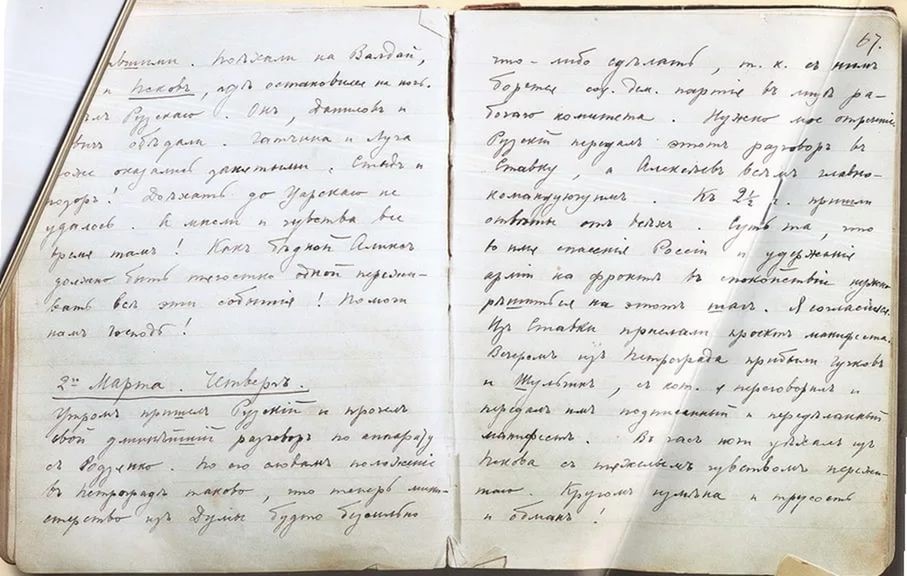 ывшими. Поѣхали на Валдай,
и Псковъ, гдѣ остановился на ночь.
Рузскаго. Онъ, Даниловъ и
обѣдали. Гатчина и Луга
тоже оказались занятыми. Стыдъ и
позоръ! Доѣхать до Царскаго не
удалось. А мысли и чувства все
время тамъ! Какъ бѣдной Аликсъ
должно быть тягостно одной пережи-
вать всѣ эти событія! Помоги
намъ Господь!
2го Марта. Четвергъ.
Утромъ пришелъ Рузскій и прочелъ
свой длиннѣйшій разговоръ по аппарату
съ Родзянко. По его словамъ положеніе
въ Петроградѣ таково, что теперь мини-
стерство изъ Думы будто безсильно
67.
что-либо сдѣлать, т. к. съ нимъ
борется соц. дем. партія въ лицѣ ра-
бочаго комитета. Нужно мое отреченіе.
Рузскій передалъ этотъ разговоръ въ
Ставку, а Алексѣевъ всѣмъ главно-
командующимъ. Къ 2½ ч. пришли
отвѣты отъ всѣхъ. Суть та, что
во имя спасенія Россіи и удержанія
арміи на фронтѣ въ спокойствіи нужно
рѣшиться на этотъ шагъ. Я согласился.
Изъ Ставки прислали проектъ манифеста.
Вечеромъ изъ Петрограда прибыли Гучковъ
и Шульгинъ, съ кот. я переговорилъ и
передалъ имъ подписанный и передѣланный
манифестъ. Въ часъ ночи уѣхалъ изъ
Пскова съ тяжелымъ чувствомъ пережи-
таго. Кругомъ измѣна и трусость
и обманъ!